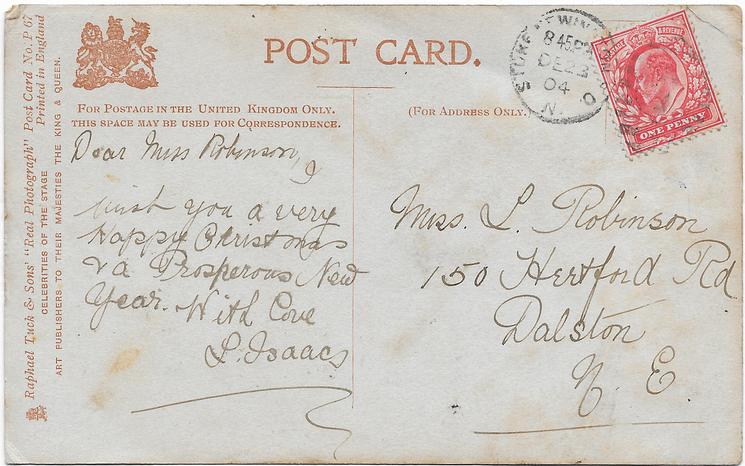 POST CARD.
FOR POSTAGE IN THE UNITED KINGDOM ONLY.
THIS SPACE MAY BE USED FOR CORRESPONDENCE.
(FOR ADDRESS ONLY.)
Dear Miss Robinson, I
wish you a very
Happy Christmas
& a Prosperous New
Year. With Love
L. Isaacs
Miss. L. Robinson
150 Hertford Rd
Dalston
N. E
STOKE NEWIN
8.45 PM
DE 23
04
N.
POSTAGE & REVENUE
ONE PENNY
Raphael Tuck & Sons' "Real Photograph" Post Card No. P 67
Printed in England
CELEBRITIES OF THE STAGE
ART PUBLISHERS TO THEIR MAJESTIES THE KING & QUEEN.